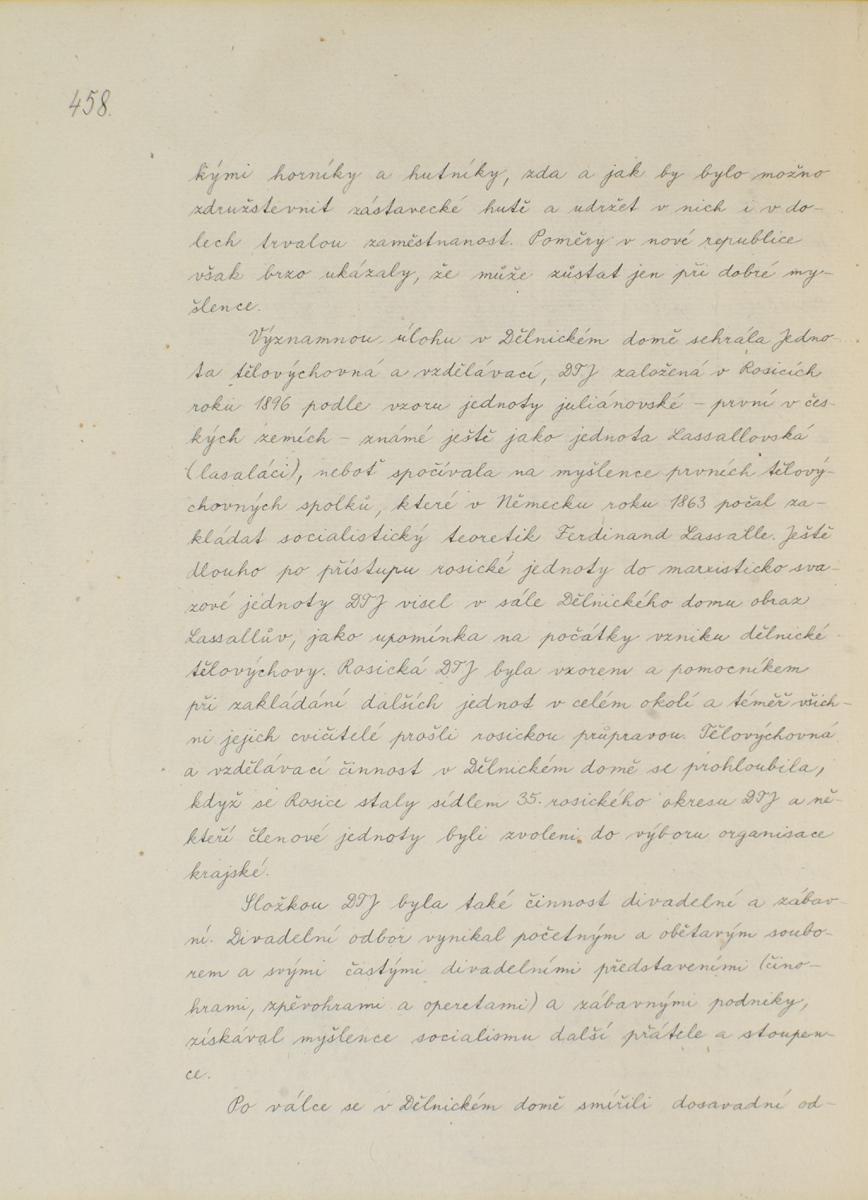 458.
kými horníky a hutníky, zda a jak by bylo možno
združstevnit zástavecké hutě a udržet v nich i v do-
lech trvalou zaměstnanost. Poměry v nové republice
však brzo ukázaly, že může zůstat jen při dobré my-
šlence.
Významnou úlohu v Dělnickém domě sehrála Jedno-
ta tělovýchovná a vzdělávací, DTJ založená v Rosicích
roku 1896 podle vzoru jednoty juliánovské - první v čes-
kých zemích - známé ještě jako jednota Lassallovská
(lasaláci), neboť spočívala na myšlence prvních tělový-
chovných spolků, které v Německu roku 1863 počal za-
kládat socialistický teoretik Ferdinand Lassalle. Ještě
dlouho po přístupu rosické jednoty do marxisticko sva-
zové jednoty DTJ visel v sále Dělnického domu obraz
Lassallův, jako upomínka na počátky vzniku dělnické
tělovýchovy. Rosická DTJ byla vzorem a pomocníkem
při zakládání dalších jednot v celém okolí a téměř všich-
ni jejich cvičitelé prošli rosickou průpravou. Tělovýchovná
a vzdělávací činnost v Dělnickém domě se prohloubila,
když se Rosice staly sídlem 35. rosického okresu DTJ a ně-
kteří členové jednoty byli zvoleni do výboru organisace
krajské.
Složkou DTJ byla také činnost divadelní a zábav-
ní. Divadelní odbor vynikal početným a obětavým soubo-
rem a svými častými divadelními představeními (čino-
hrami, zpěvohrami a operetami) a zábavnými podniky,
získával myšlence socialismu další přátele a stoupen-
ce.
Po válce se v Dělnickém domě smířili dosavadní od-